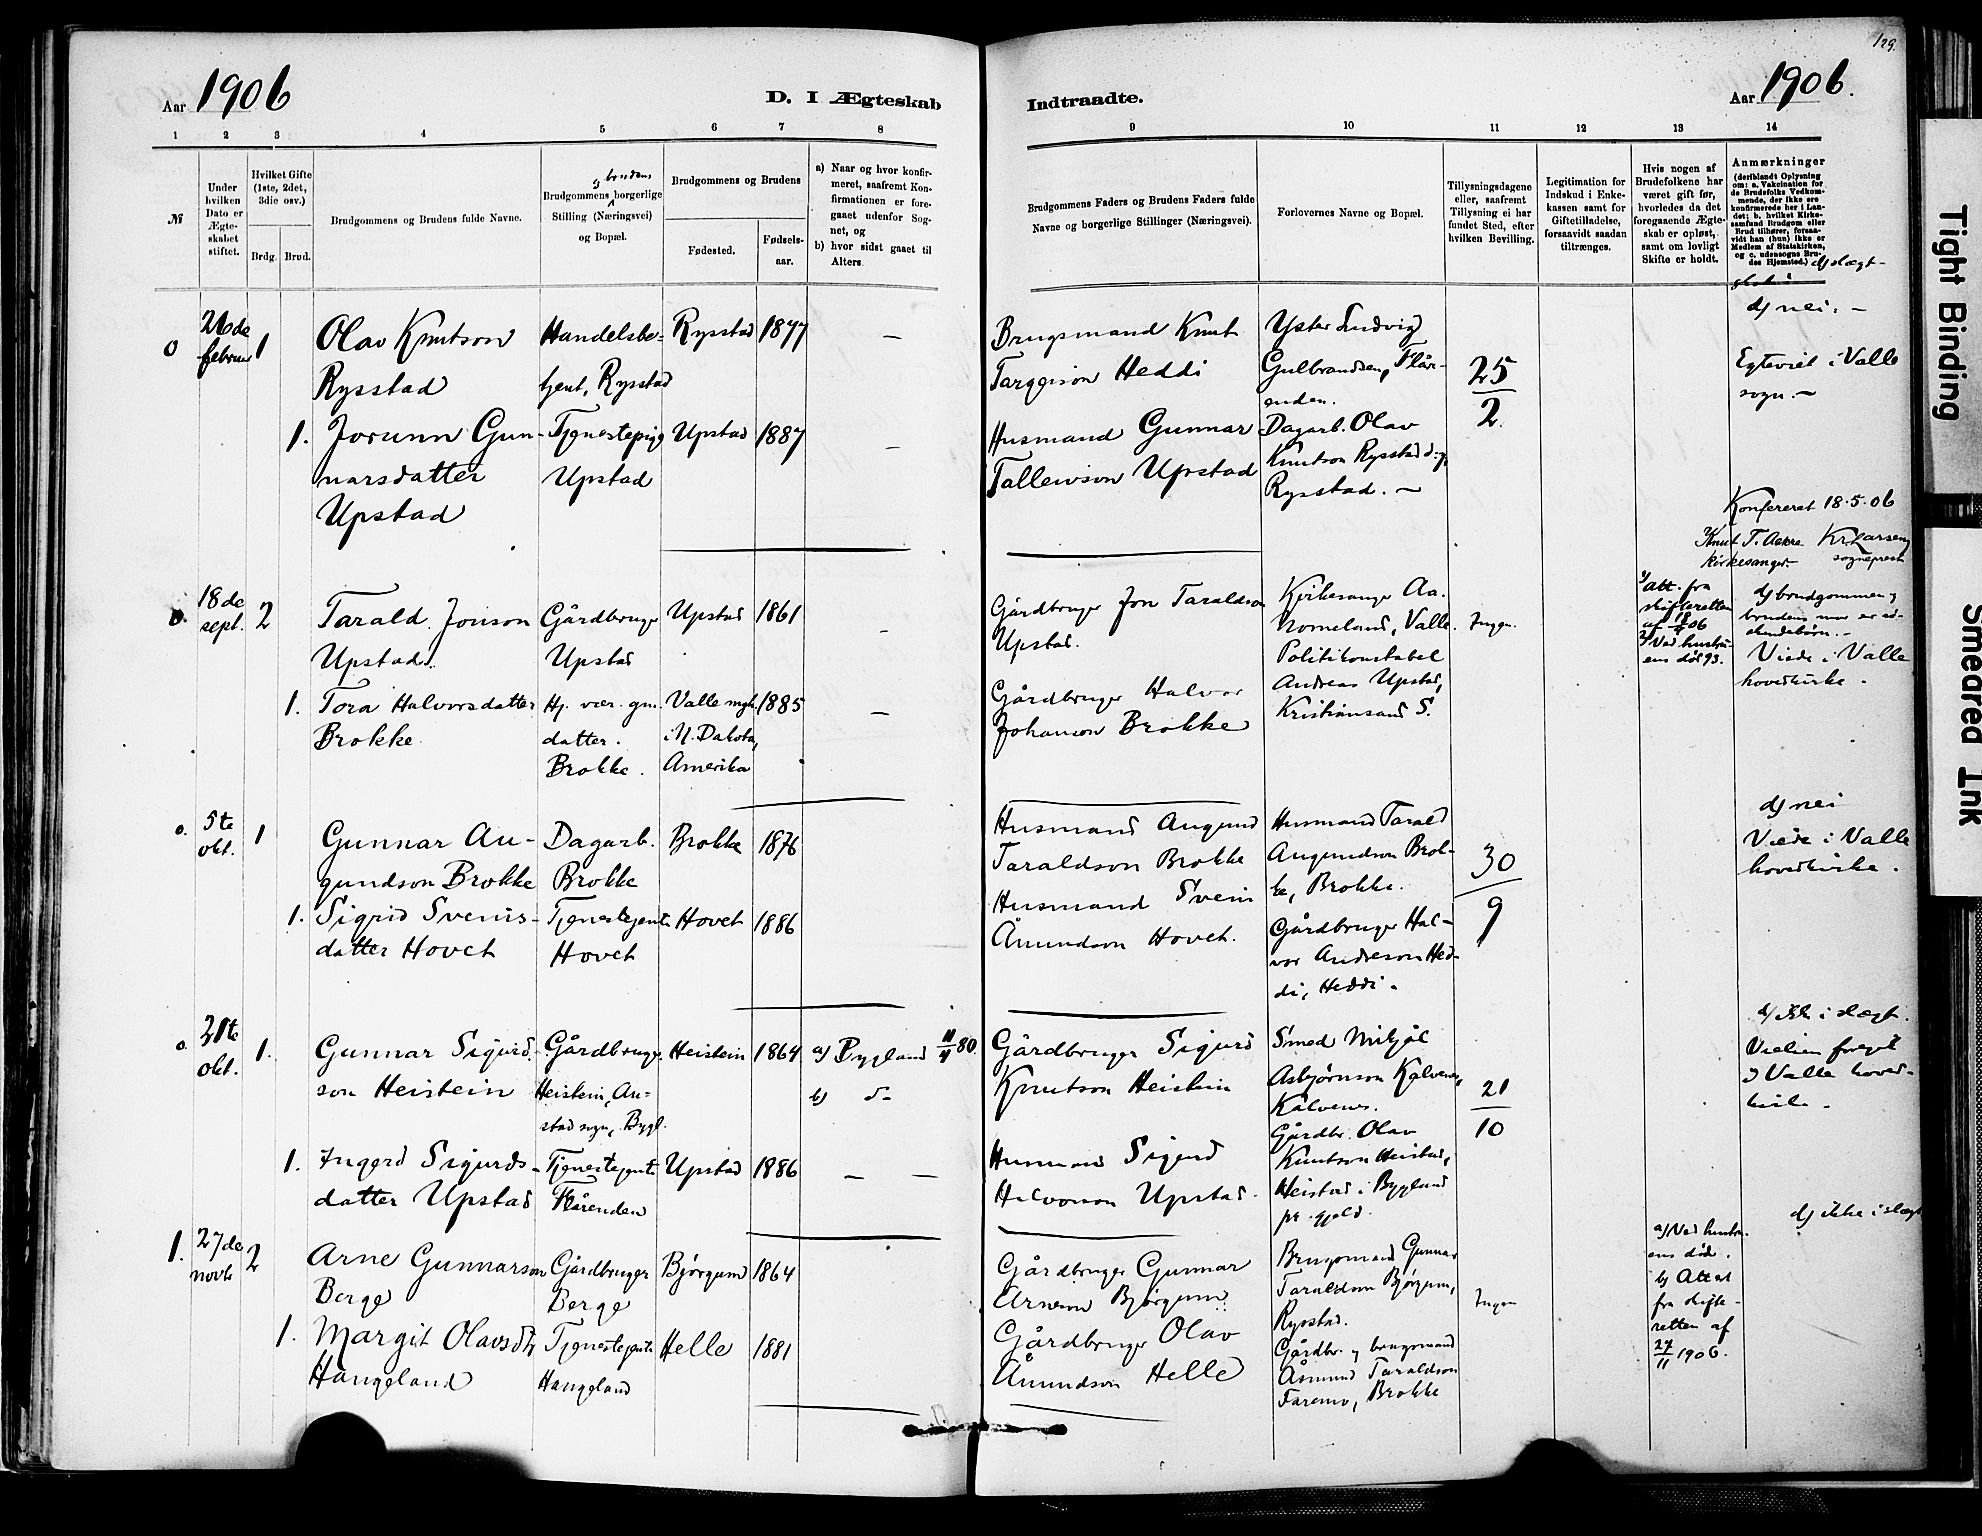 129.
Aar 1906
D. I Ægteskab
Indtraadte.
Aar 1906.
1 2 3 4 5 6 7 8
9 10 11 12 13 14
№
Under hvilken Dato er Ægteskabet stiftet.
Hvilket Gifte (1ste, 2det, 3die osv.)
Brdg. Brud.
Brudgommens og Brudens fulde Navne.
og brudens
Brudgommens borgerlige Stilling (Næringsvei) og Bopæl.
Brudgommens og Brudens
Fødested.
Fødselsaar.
a) Naar og hvor konfirmeret, saafremt Konfirmationen er foregaaet udenfor Sognet, og
b) hvor sidst gaaet til Alters.
Brudgommens Faders og Brudens Faders fulde Navne og borgerlige Stillinger (Næringsvei).
Forlovernes Navne og Bopæl.
Tillysningsdagene eller, saafremt Tillysning ei har fundet Sted, efter hvilken Bevilling.
Legitimation for Indskud i Enkekassen samt for Giftetilladelse, forsaavidt saadan tiltrænges.
Hvis nogen af Brudefolkene har været gift før, hvorledes da det foregaaende Ægteskab er opløst, samt om lovligt Skifte er holdt.
Anmærkninger
(deriblandt Oplysning om: a. Vakcination for de Brudefolks Vedkommende, der ikke ere konfirmerede her i Landet; b. hvilket Kirkesamfund Brudgom eller Brud tilhører, forsaavidt han (hun) ikke er Medlem af Statskirken, og c. udensogns Brudes Hjemsted.)
d) slægt-
0
26de
februar
1
Olav Knutson
Rysstad
Handelsbe-
tjent, Rysstad
Rysstad
1877
—
Brugsmand Knut
Targeison Heddi
Yster Ludvig
Gulbrandsen, Flår-
enden.
25
2.
d) nei. -
Egteviet i Valle
sogn. -
1.
Jorunn Gun-
narsdatter
Upstad
Tjenestepige
Upstad
Upstad
1887
—
Husmand Gunnar
Tallewson Upstad
Dagarb. Olav
Knutson Rysstad
Rysstad. -
Konfereret 18.5.06
Knut T. Aakre
kirkesanger.
Kr. Larsen
sogneprest
0.
18de
sept.
2
Tarald Jonson
Upstad.
Gårdbruger
Upstad
Upstad
1861
—
Gårdbruger Jon Taraldson
Upstad.
Kirkesanger Aa.
Nomeland, Valle.
Politikonstabel
Andreas Upstad,
Kristiansand S.
Ingen.
1) Att. fra
skifteretten
af 18/9 06
2) Ved hustru-
ens død 93.
d) brudgommen og
brudens mor er sø-
skendebørn. -
Viede i Valle
hovedkirke.
1.
Tora Halvorsdatter
Brokke
Hj. vær. gm.
datter.
Brokke.
Valle mgh.
i N. Dakota,
Amerika
1885
—
Gårdbruger Halvor
Johanson Brokke
0.
5te
okt.
1
Gunnar Au-
gundson Brokke
Dagarb.
Brokke
Brokke
1876
Husmand Augund
Taraldson Brokke
Husmand Tarald
Augundson Brok-
ke, Brokke.
30
9
d) nei
Viede i Valle
hovedkirke.
1.
Sigrid Sveins-
datter Hovet
Tjenestejente
Hovet
Hovet
1886
Husmand Svein
Åmundson Hovet.
Gårdbruger Hal-
vor Andreson Hed-
di, Heddi.
0.
21te
okt.
1.
Gunnar Sigurd-
son Heistein
Gårdbruger
Heistein, Au-
stad sogn, Bygl.
Heistein
1864
a) Bygland 11/4 80.
b) d-
Gårdbruger Sigurd
Knutson Heistein
Smed Mikjål
Asbjørnson Kålvenes,
Kålvenes.
21
10
d) ikke i slægt.
Vielsen foregik
i Valle hoved-
kirke.
1.
Ingerd Sigurds-
datter Upstad
Tjenestejente
Flårenden
Upstad
1886
— —
Husmand Sigurd
Halvorson Upstad.
Gårdbr. Olav
Knutson Heistad,
Heistad i Bygland
pr.gjeld.
1.
27de
novb
2
Arne Gunnarson
Berge
Gårdbruger
Berge
Bjørgum
1864
Gårdbruger Gunnar
Arneson Bjørgum
Brugsmand Gunnar
Taraldson Bjørgum,
Rysstad.
Ingen
a) Ved hustru-
ens død.
b) Attest
fra skifte-
retten af
27/11 1906.
d) ikke i slægt
1.
Margit Olavsdtr
Haugeland
Tjenestejente
Haugeland
Helle
1881
Gårdbruger Olav
Åmundson Helle
Gårdbr. og brugsmand
Åsmund Taraldson
Faremo, Brokke
Tight Binding
Smeared Ink